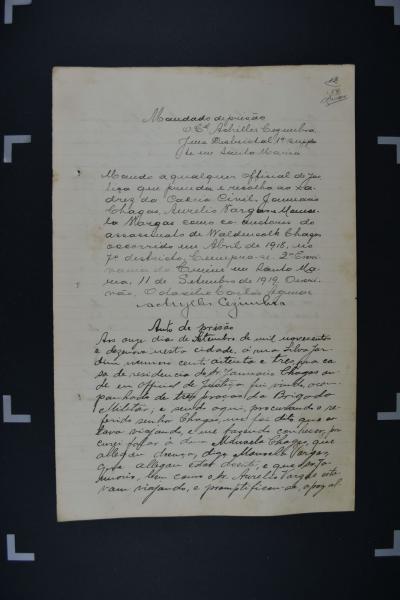 Mandado de prisão
O Cel Achilles Cezimbra,
Juiz Districtal 1º supplen
te em Santa Maria
Mando a qualquer official de Jus
tiça que prenda e recolha ao Xa
drez da Cadeia Civil, Januario
Chagas, Aurelio Vargas e Manoe
la Vargas como co-auctores do
assassinato de Waldemath Chagas
occorrido em Abril de 1918, no
7º districto. Cumpra-se. 2º Escri
vania do Crime em Santa Ma
ria, 11 de Setembro de 1919. O escri
vão, Octacilio Carlos
Achylles Cezimbra
Auto de prisão
Aos onze dias de Setembro de mil novecentos
e dezenove nesta cidade, á rua Silva Jar
dim numero cento e tres, fui a ca
sa de residencia de Sr. Januario Chagas on
de eu Official de Justiça fui vindo acom
panhado de tres praças da Brigada
Militar, e sendo aqui, procurando o re
ferido senhor Chagas, me foi dito que es
tava viajando, e me fazendo conhecer, pro
curei fallar á dona Manoela Chagas, que
allegou doença, digo Manoella Vargas,
que allegou estar doente, e que o Sr. Ja
nuario, bem como o Sr. Aurelio Vargas esta
vam viajando, e promptificou-se, apoz al